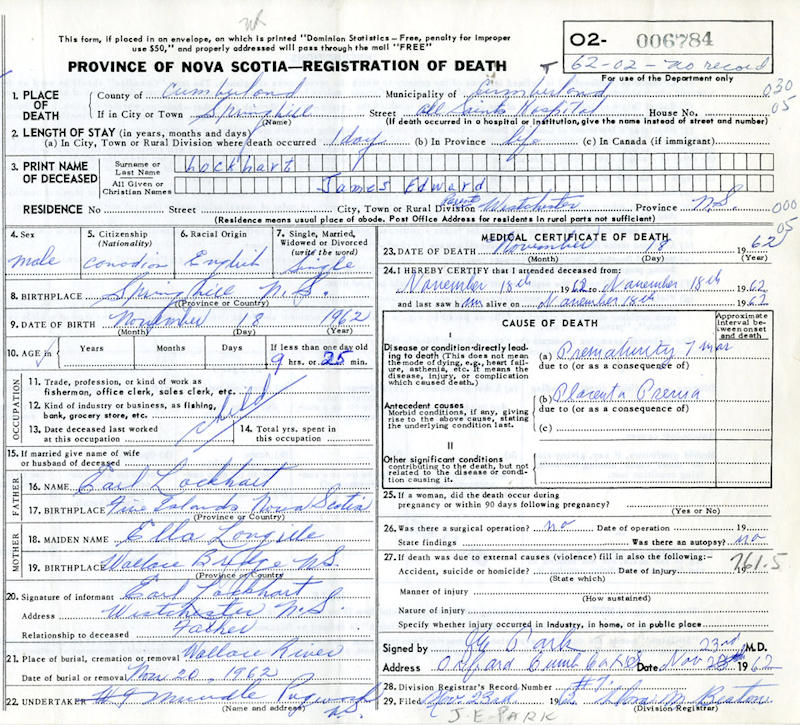 NR
This form, if placed in an envelope, on which is printed "Dominion Statistics—Free, penalty for improper
use $50," and properly addressed will pass through the mail "FREE"
02- 006784
62-02-no record
For use of the Department only
PROVINCE OF NOVA SCOTIA—REGISTRATION OF DEATH
1. PLACE OF DEATH
County of Cumberland Municipality of Cumberland 030
If in City or Town Springhill Street All Saints Hospital House No. 05
(Name) (If death occurred in a hospital or institution, give the name instead of street and number)
2. LENGTH OF STAY (in years, months and days)
(a) In City, Town or Rural Division where death occurred 1 day (b) In Province life (c) In Canada (if immigrant)
3. PRINT NAME OF DECEASED
Surname or Last Name Lockhart
All Given or Christian Names James Edward
RESIDENCE No Street City, Town or Rural Division Westchester Province N.S. 000
05
(Residence means usual place of abode. Post Office Address for residents in rural parts not sufficient)
4. Sex
male
5. Citizenship
(Nationality)
Canadian
6. Racial Origin
English
7. Single, Married,
Widowed or Divorced
(write the word)
Single
8. BIRTHPLACE Springhill N.S.
(Province or Country)
9. DATE OF BIRTH November 18 1962
(Month) (Day) (Year)
10. AGE in Years Months Days If less than one day old
9 hrs. or 25 min.
OCCUPATION
11. Trade, profession, or kind of work as
fisherman, office clerk, sales clerk, etc.
12. Kind of industry or business, as fishing,
bank, grocery store, etc.
child
13. Date deceased last worked
at this occupation
14. Total yrs. spent in
this occupation
15. If married give name of wife
or husband of deceased
FATHER
16. NAME Earl Lockhart
17. BIRTHPLACE Five Islands Nova Scotia
(Province or Country)
MOTHER
18. MAIDEN NAME Ella
19. BIRTHPLACE Wallace Bridge N.S.
(Province or Country
20. Signature of informant Earl Lockhart
Address Westchester N.S.
Relationship to deceased Father
21. Place of burial, cremation or removal Wallace River
Date of burial or removal Nov. 20, 1962
22. UNDERTAKER Pugwash
N.S.
(Name and address)
MEDICAL CERTIFICATE OF DEATH
23. DATE OF DEATH November 18 1962
(Month) (Day) (Year)
24. I HEREBY CERTIFY that I attended deceased from:
November 18th 1962 to November 18th 1962
and last saw him alive on November 18th 1962
CAUSE OF DEATH
Approximate
interval be-
tween onset
and death
I
Disease or condition directly lead-
ing to death (This does not mean
the mode of dying, e.g., heart fail-
ure, asthenia, etc. It means the
disease, injury, or complication
which caused death.)
(a) Prematurity 7 mos
due to (or as a consequence of)
Antecedent causes
Morbid conditions, if any, giving
rise to the above cause, stating the
underlying condition last.
(b) Placenta Previa
due to (or as a consequence of)
(c)
II
Other significant conditions
contributing to the death, but not
related to the disease or condi-
tion causing it.
25. If a woman, did the death occur during
pregnancy or within 90 days following pregnancy?
(Yes or No)
26. Was there a surgical operation? no Date of operation 19
State findings Was there an autopsy? no
27. If death was due to external causes (violence) fill in also the following:—
Accident, suicide or homicide? Date of injury 19 761.5
(State which)
Manner of injury
(How sustained)
Nature of injury
Specify whether injury occurred in industry, in home, or in public place
Signed by Park M.D.
23rd
Address Oxford Cumb Co NS Date Nov 1962
28. Division Registrar's Record Number
29. Filed Nov 23rd
(Division Registrar)
J-E-PARK